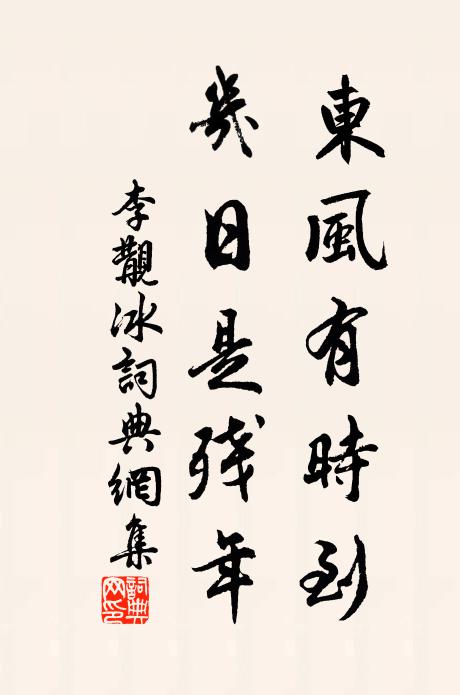 東風有時到
幾日是残年
李觀冰詞典網集
詞典网印